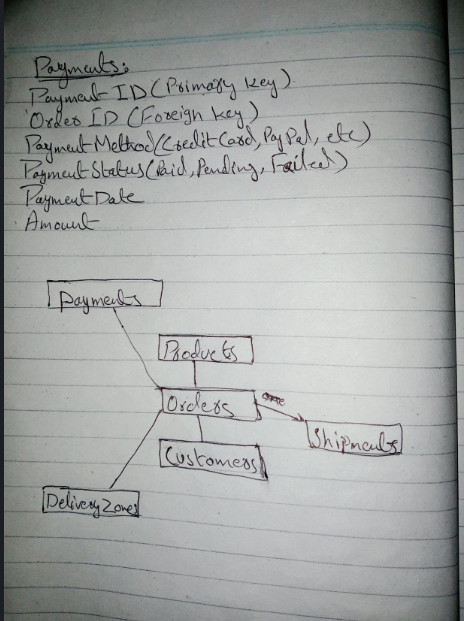 Payments:
Payment ID (Primary key)
Order ID (Foreign key)
Payment Method (Credit Card, PayPal, etc)
Payment Status (Paid, Pending, Failed)
Payment Date
Amount
Payments
Products
Orders
Shipments
Customers
Delivery Zones